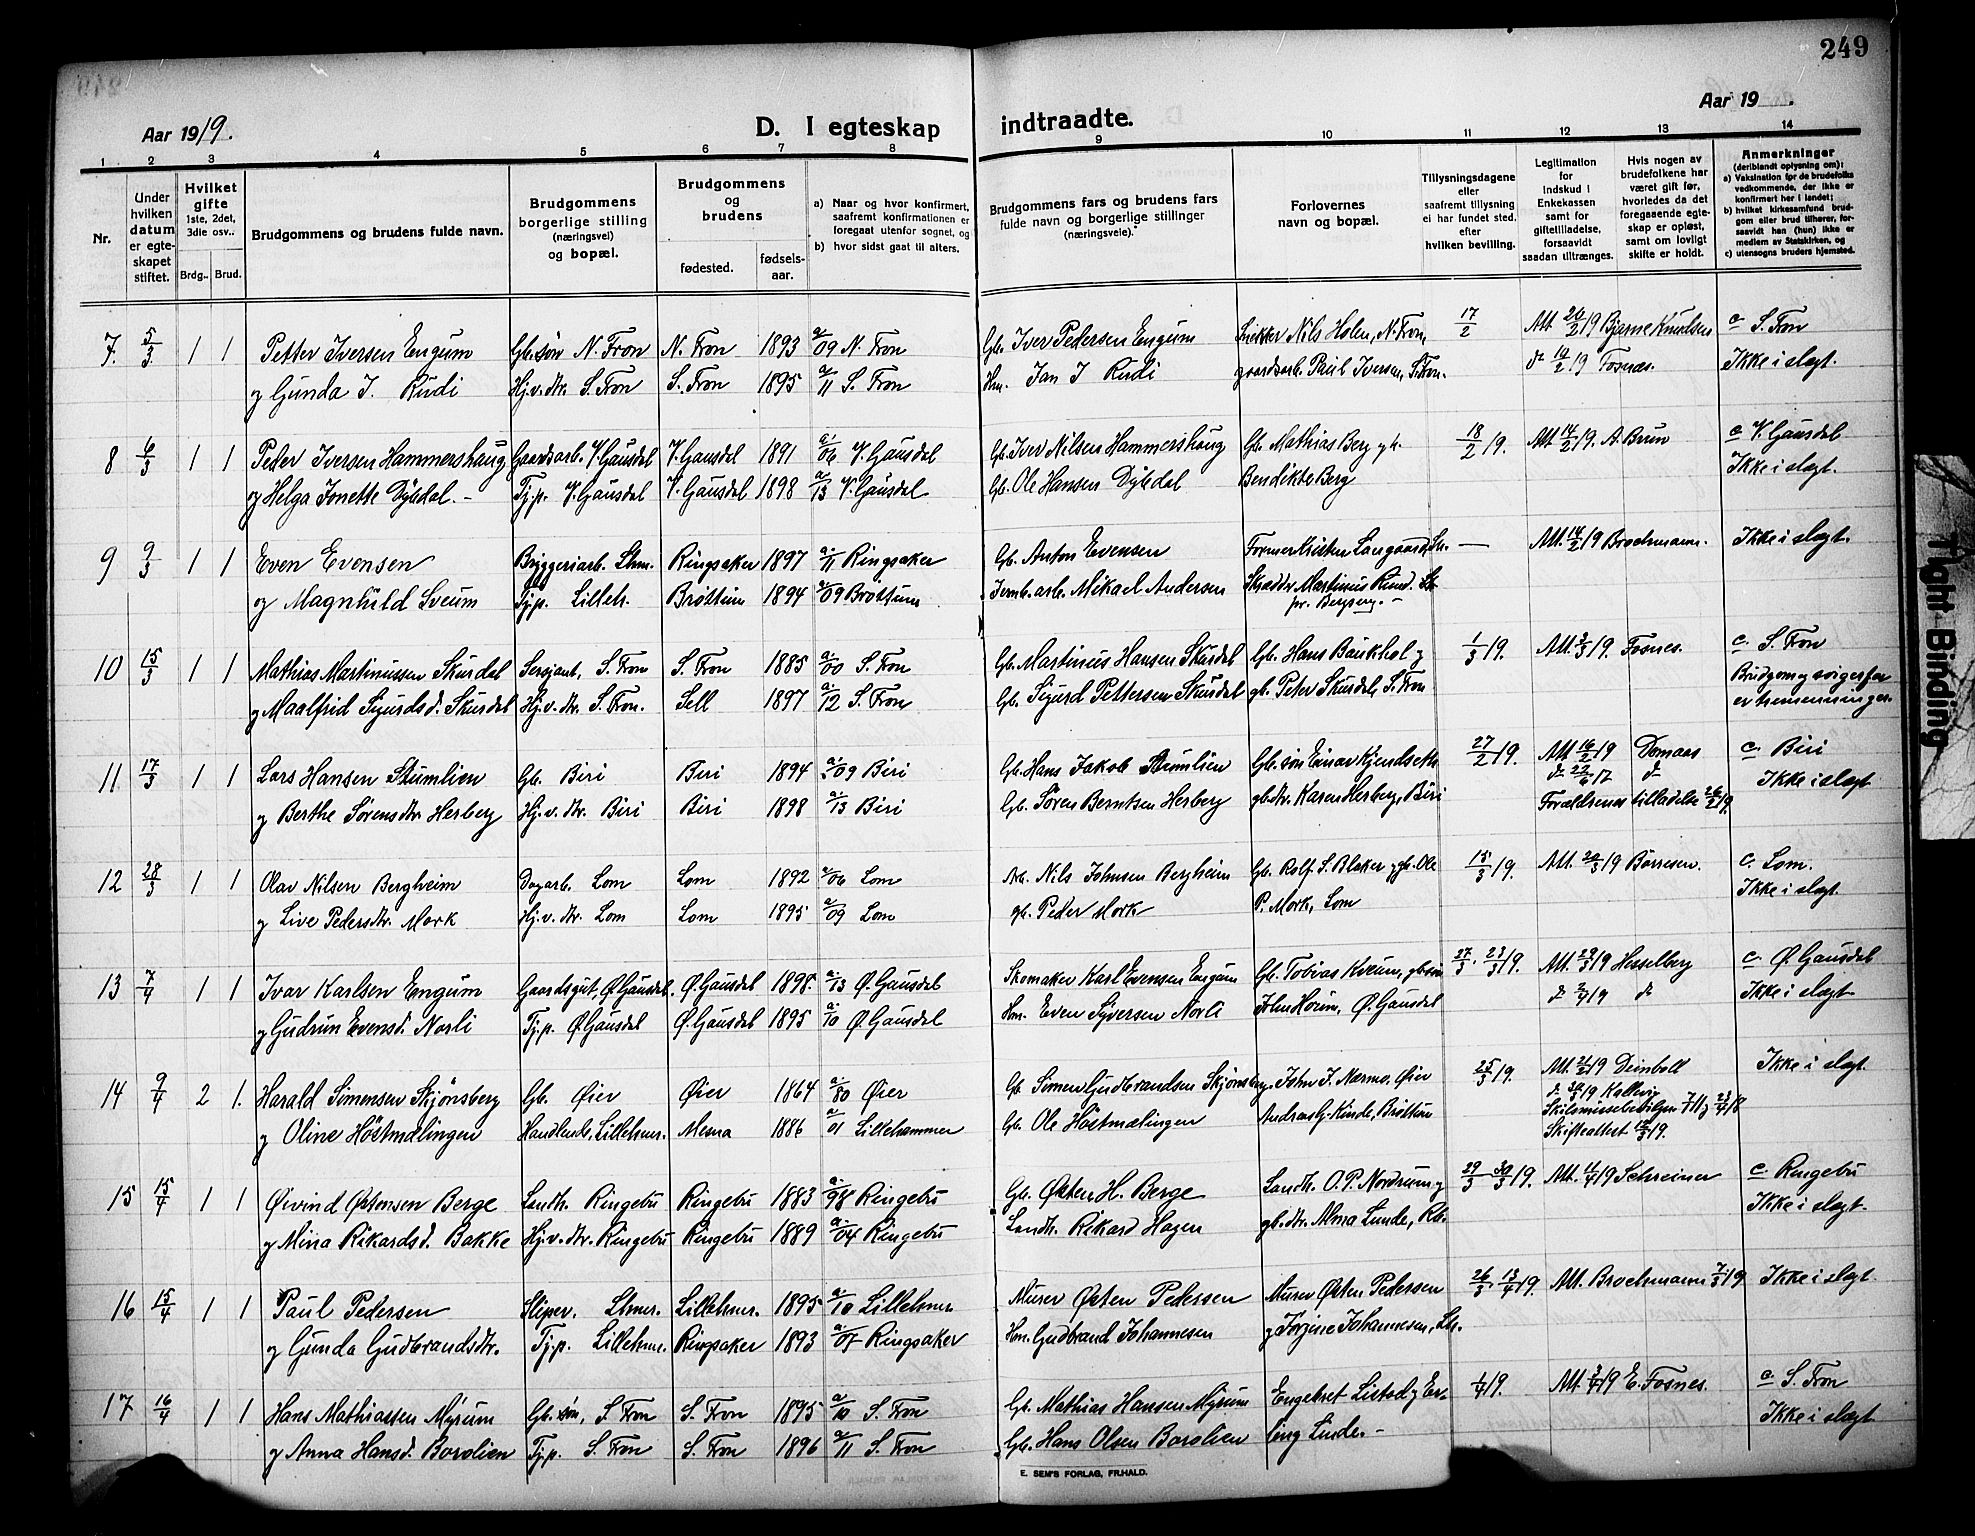 249
Aar 1919.
D. I egteskap
indtraadte.
Aar 19 .
1 2 3 4 5 6 7 8 9 10 11 12 13 14
Nr.
Under hvilken datum er egteskapet stiftet.
Hvilket gifte 1ste, 2det, 3die osv..
Brdg.. Brud.
Brudgommens og brudens fulde navn.
Brudgommens borgerlige stilling (næringsvei) og bopæl.
Brudgommens og brudens
fødested. fødselsaar.
a) Naar og hvor konfirmert, saafremt konfirmationen er foregaat utenfor sognet, og
b) hvor sidst gaat til alters.
Brudgommens fars og brudens fars fulde navn og borgerlige stillinger (næringsveie).
Forlovernes navn og bopæl.
Tillysningsdagene eller saafremt tillysning ei har fundet sted, efter hvilken bevilling.
Legitimation for indskud i Enkekassen samt for giftetilladelse, forsaavidt saadan tiltrænges.
Hvis nogen av brudefolkene har været gift før, hvorledes da det foregaaende egteskap er opløst, samt om lovligt skifte er holdt.
Anmerkninger (deriblandt oplysning om):
a) Vaksination før de brudefolks vedkommende, der ikke er konfirmert her i landet;
b) hvilket kirkesamfund brudgom eller brud tilhører, forsaavidt han (hun) ikke er medlem av Statskirken, og
c) utensogns bruders hjemsted.
7. 5/3 1 1 Petter Iversen Engum Gb. søn N. Fron N. Fron 1893 a/09 N. Fron Gb. Iver Pedersen Engum Snekker Nils Holen, N. Fron, 17/2 Att. 20/2 19 Bjarne Knudsen c S. Fron
og Gunda J. Rudi Hj.v. dtr. S. Fron S. Fron 1895 a/11 S. Fron Hm. Jan J Rudi gaardsarb. Paul Iversen, S. Fron. do 19/2 19 Fosnæs. Ikke i slegt.
8 6/3 1 1 Peder Iversen Hammershaug Gaardsarb. V. Gausdal V. Gausdal 1891 a/06 V. Gausdal Gb. Iver Nilsen Hammershaug Gb. Mathias Berg 18/2 19. Att. 14/2 19. A. Brun c V. Gausdal
og Helga Jonette Dyledal.- Tj.p. V. Gausdal V. Gausdal 1898 a/13 V. Gausdal Gb. Ole Hansen Dyledal Bendikte Berg Ikke i slegt.
9 9/3 1 1 Even Evensen Bryggeriarb. Lhm. Ringsaker 1897 a/11 Ringsaker Gb. Anton Evensen Former Kristen Langaard, Lh. — Att. 14/2 19 Brochmann. Ikke i slegt.
og Magnhild Sveum Tj.p. Lilleh. Brøttum 1894 a/09 Brøttum Jernb. arb. Mikael Andersen Skrædder Martinus Rund.
pr. Bergseng.-
10 15/3 1 1 Mathias Martinussen Skurdal Sersjant, S. Fron S. Fron 1885 a/00 S. Fron Gb. Martinus Hansen Skurdal Gb. Hans Baukhol og 1/3 19. Att. 3/3 19. Fosnes. c. S. Fron
og Maalfrid Sigurdsd. Skurdal Hj.v. dtr. S. Fron. Sell 1897 a/12 S. Fron Gb. Sigurd Pettersen Skurdal gb. Peter Skurdal, S. Fron Brudgom og svigerfar
er tremenninger.
11 17/3 1 1 Lars Hansen Stumlien Gb. Biri Biri 1894 a/09 Biri Gb. Hans Jakob Stumlien Gb. søn Einar Kjendseth 27/2 19. Att. 16/2 19 Domaas c. Biri
do 22/6 17 do Ikke i slegt
og Berthe Sørensdtr. Herberg Hj.v. dtr. Biri Biri 1898 a/13 Biri Gb. Søren Berntsen Herberg gb.dtr. Karen Herberg, Biri Forældrenes tilladelse 26/2 19.
12 28/3 1 1 Olav Nilsen Bergheim Dagarb. Lom Lom 1892 a/06 Lom Arb. Nils Johnsen Bergheim Gb. Rolf S. Blaker og gb. Ole 15/3 19. Att. 20/3 19 Børresen. c. Lom.
og Live Pedersdtr. Mork Hj.v. dtr. Lom Lom 1895 a/09 Lom gb. Peder Mork P. Mork, Lom Ikke i slegt.
13 7/4 1 1 Ivar Karlsen Engum Gaardsgut, Ø. Gausdal. Ø. Gausdal 1898 a/13 Ø. Gausdal Skomaker Karl Evensen Engum Gb. Tobias Kveum, gb.søn 27/3 . 23/3 19. Att. 29/3 19 Hesselberg c. Ø. Gausdal
og Gudrun Evensd. Norli Tj.p. Ø. Gausdal Ø. Gausdal 1895 a/10 Ø. Gausdal Hm. Even Syversen Norli John Horum, Ø. Gausdal do 2/4 19 do Ikke i slegt
14 9/4 2 1. Harald Simensen Skjønsberg Gb. Øier Øier 1864 a/80 Øier Gb. Simen Gudbrandsen Skjønsberg John J. Narmo, Øier 25/3 19. Att. 21/2 19 Deinboll Ikke i slegt
do 30/3 19 Kallevig
Skilsmissebevilgn 7/7 11 og 23/4 18
og Oline Høstmælingen Handlende, Lillehmr. Mesna 1886 a/01 Lillehammer Gb. Ole Høstmælingen Andreas G. Kinde, Brøttum Skifteattest 18/3 19.
15 15/4 1 1 Øivind Østensen Berge Landh. Ringebu Ringebu 1883 a/98 Ringebu Gb. Østen H. Berge Landh. O.P. Nordrum og 29/3 30/3 19. Att. 11/4 19 Schreiner c. Ringebu
og Mina Rikardsd. Bakke Hj.v. dtr. Ringebu Ringebu 1889 a/04 Ringebu Landh. Rikard Hagen gb. dtr. Alma Lunde, Rb. Ikke i slegt.
16 15/4 1 1 Paul Pedersen Sliper, Lhmr. Lillehmr. 1895 a/10 Lillehmr. Murer Østen Pedersen Murer Østen Pedersen 26/3 . 13/4 19. Att. Brochmann 7/3 19 Ikke i slegt.
og Gunda Gudbrandsdtr. Tj.p. Lillehmr. Ringsaker 1893 a/07 Ringsaker Hm. Gudbrand Johannesen og Jørgine Johannesen, Lh.
17 16/4 1 1 Hans Mathiassen Myrum Gb. søn, S. Fron S. Fron 1895 a/10 S. Fron Gb. Mathias Hansen Myrum Engebret Listad og Er- 1/4 19. Att. 3/4 19 E. Fosnes. c. S. Fron
og Anna Hansd. Borolien Tj.p. S. Fron S. Fron 1896 a/11 S. Fron Gb. Hans Olsen Borolien ling Linde.- Ikke i slegt
E. SEM'S FORLAG, FR.HALD.
Tight Binding